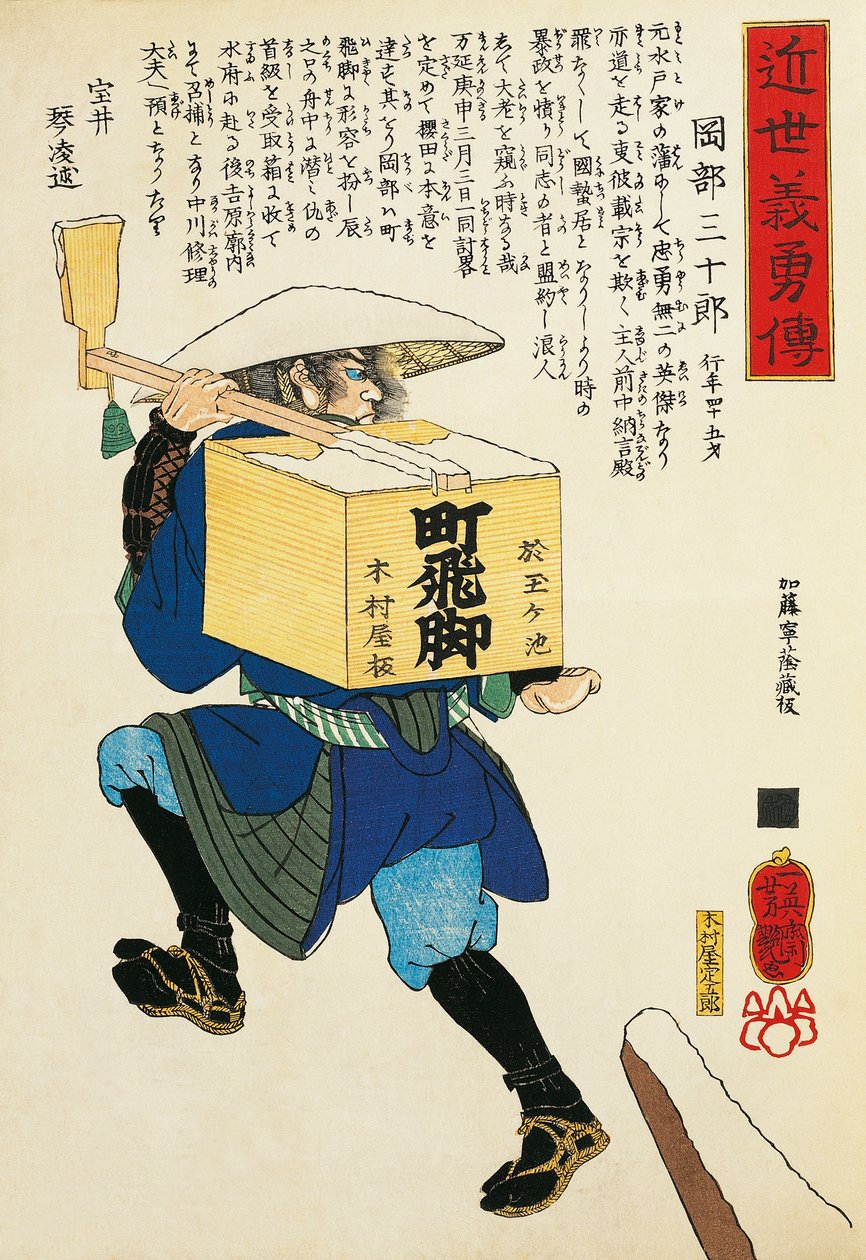 近世義勇傳
岡部三十郎 行年四十五才
元水戸家の藩にして忠勇無二の英傑なり
亦道を走る東彼載宗を欺く主人前中納言殿
罪なくして國蟄居となりしより時の
暴政を憤り同志の者と盟約し浪人
して大老を窺ふ時なる哉
万延庚申三月三日一同討畧
を定めて櫻田に本意を
達す其をり岡部ハ町
飛脚に形容を扮し辰
之口の舟中に潜ミ仇の
首級を受取箱に收て
水府に赴る後吉原廓内
にて召捕となり中川修理
大夫へ預となりたり
宝井
琴凌述
於玉ヶ池
町飛脚
木村屋板
加藤寧蔭蔵板
一英齋
芳艶画
木村屋定五郎